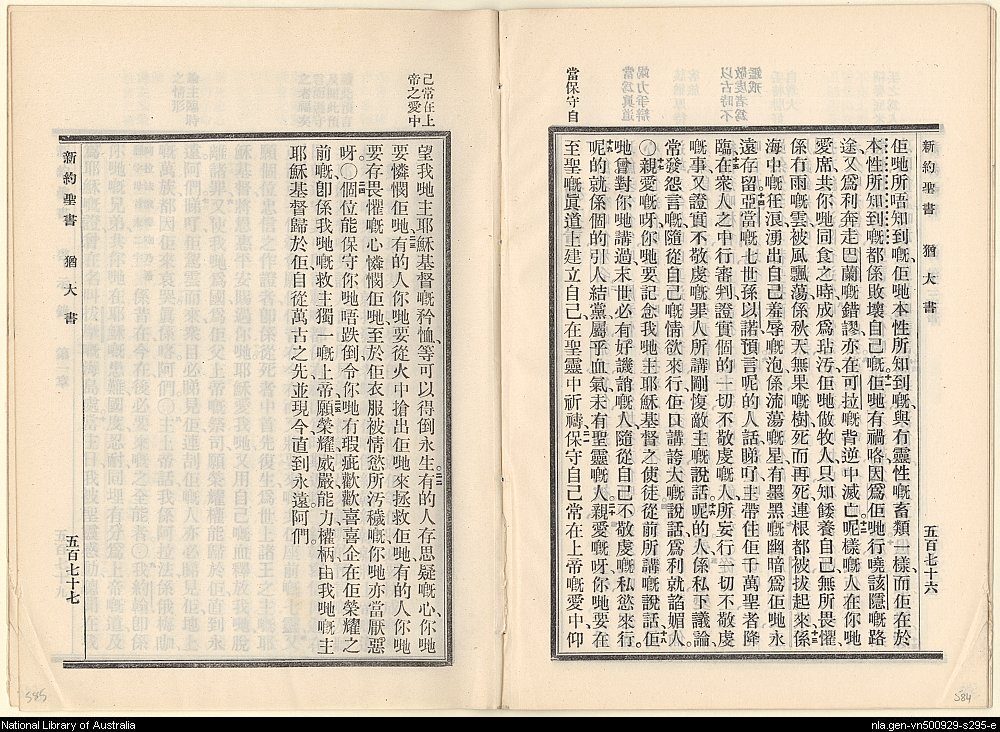 新約聖書 猶大書 五百七十六
當保守自
佢哋所唔知到嘅、佢哋本性所知到嘅、與冇靈性嘅畜類一樣、而佢在於
本性所知到嘅、都係敗壞自己嘅。佢哋有禍咯、因爲佢哋行曉該隱嘅路
途、又爲利奔走巴蘭嘅錯謬、亦在可拉嘅背逆中滅亡。呢樣嘅人、在你哋
愛席、共你哋同食之時、成爲玷汚、佢哋做牧人、只知餧養自己、無所畏懼、
係冇雨嘅雲、被風飄蕩、係秋天無果嘅樹、死而再死、連根都被拔起來、係
海中嘅狂浪、湧出自己羞辱嘅泡、係流蕩嘅星、有墨黑嘅幽暗爲佢哋永
遠存留。亞當嘅七世孫以諾、預言呢的人話、睇吓主帶住佢千萬聖者降
臨、在衆人之中行審判、證實個的一切不敬虔嘅人、所妄行一切不敬虔
嘅事、又證實不敬虔嘅罪人、所講剛愎敵主嘅說話。呢的人係私下議論、
常發怨言嘅、隨從自己嘅情欲來行、佢口講誇大嘅說話、爲利就諂媚人。
〇親愛嘅呀、你哋要記念我哋主耶穌基督之使徒從前所講嘅說話、佢
哋曾對你哋講過、末世必有好譏誚嘅人、隨從自己不敬虔嘅私慾來行。
呢的就係個的引人結黨、屬乎血氣、未有聖靈嘅人。親愛嘅呀、你哋要在
至聖嘅眞道上建立自己、在聖靈中祈禱、保守自己常在上帝嘅愛中、仰
己常在上
帝之愛中
望我哋主耶穌基督嘅矜恤、等可以得倒永生。有的人存思疑嘅心、你哋
要憐憫佢哋、有的人你哋要從火中搶出佢哋來拯救佢哋、有的人你哋
要存畏懼嘅心憐憫佢哋、至於佢衣服被情慾所汚穢嘅、你哋亦當厭惡
呀。〇個位能保守你哋唔跌倒、令你哋冇瑕疵、歡歡喜喜企在佢榮耀之
前嘅、卽係我哋嘅救主獨一嘅上帝、願榮耀威嚴能力權柄、由我哋嘅主
耶穌基督歸於佢、自從萬古之先、並現今直到永遠、阿們。
新約聖書 猶大書 五百七十七
584
585
National Library of Australia
nla.gen-vn500929-s295-e